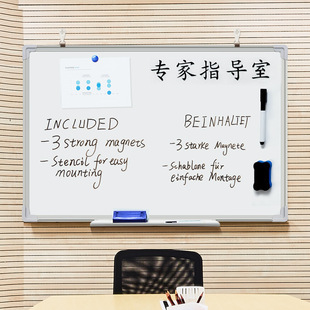 专家指导室
INCLUDED
- 3 strong magnets
- Stencil for easy
mounting
BEINHALTET
- 3 starke Magnete
- Schablone für
einfache Montage